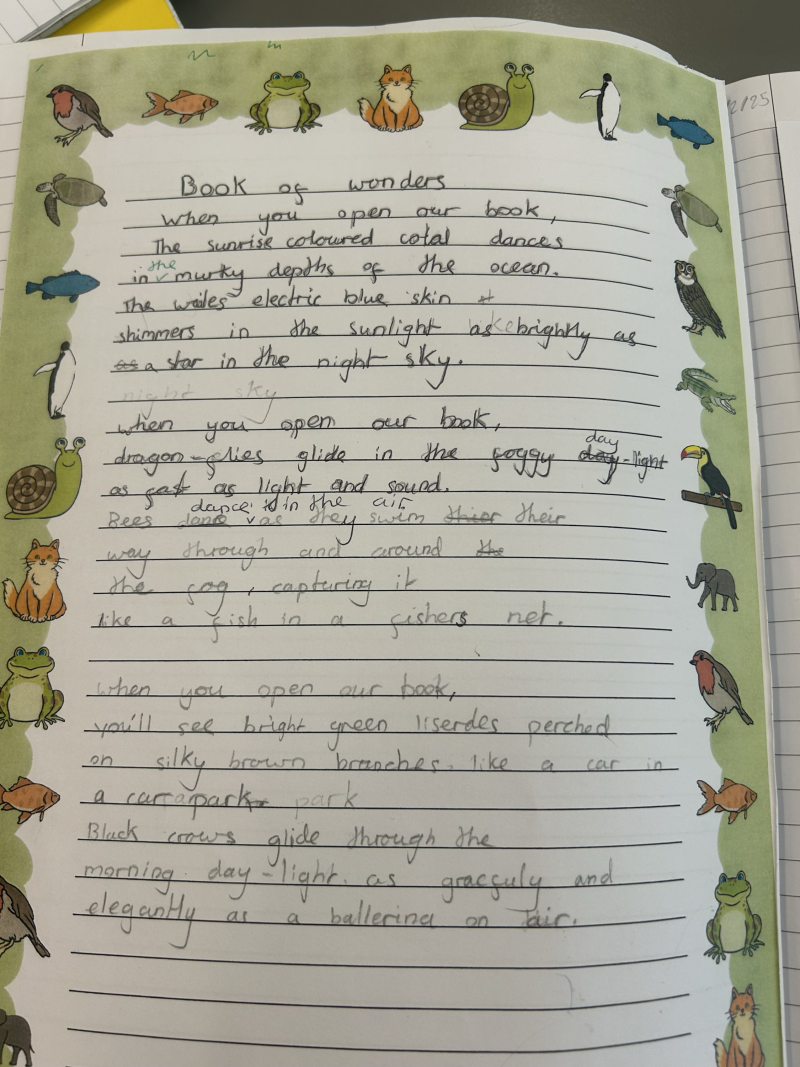 2/25
Book of wonders
When you open our book,
The sunrise coloured cotal dances
in the murky depths of the ocean.
The wailes electric blue skin
shimmers in the sunlight as brightly as
as a star in the night sky.
night sky
when you open our book,
dragon-flies glide in the foggy day day-light
as fast as light and sound.
Bees dance in the air as they swim thier their
way through and around the
the fog, capturing it
like a fish in a fishers net.
when you open our book,
you'll see bright green liserdes perched
on silky brown branches. like a car in
a car park park
Black crows glide through the
morning. day-light. as gracfuly and
elegantly as a ballerina on air.